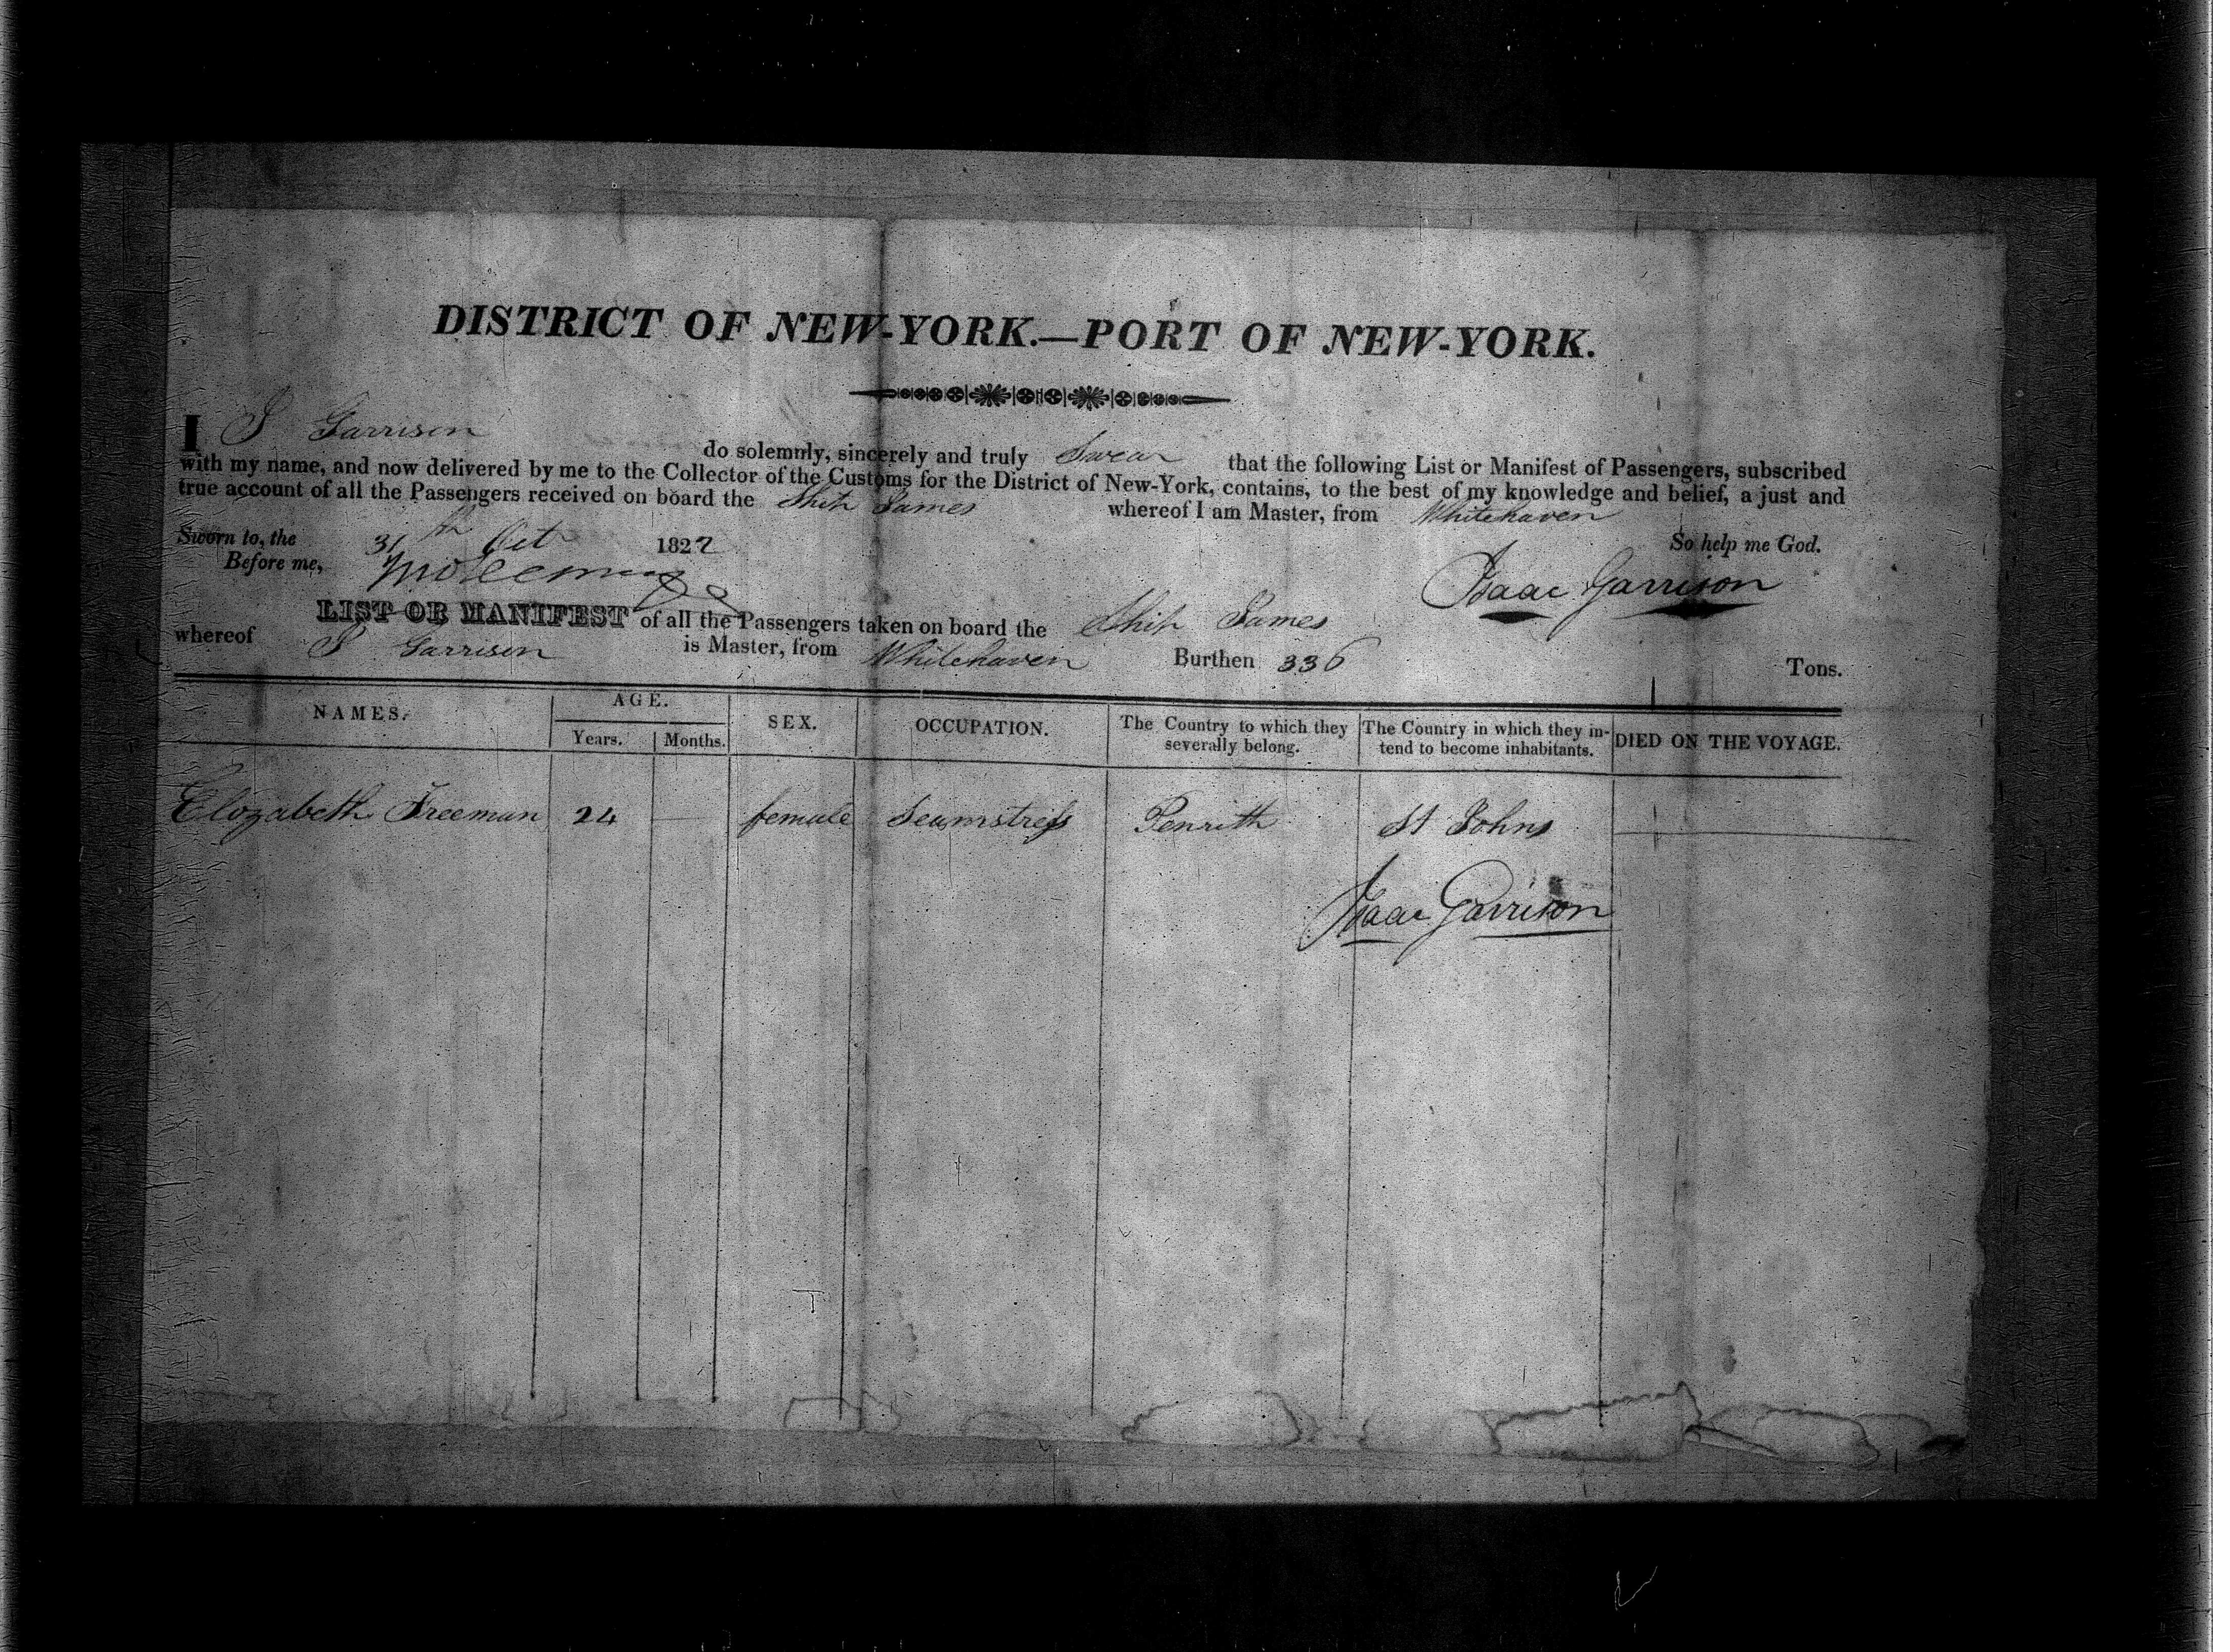 DISTRICT OF NEW-YORK.—PORT OF NEW-YORK.
I I Garrison do solemnly, sincerely and truly Swear that the following List or Manifest of Passengers, subscribed
with my name, and now delivered by me to the Collector of the Customs for the District of New-York, contains, to the best of my knowledge and belief, a just and
true account of all the Passengers received on board the Ship James whereof I am Master, from Whitehaven
Sworn to, the 31th Oct 1822 So help me God.
Before me,
Isaac Garrison
LIST OR MANIFEST of all the Passengers taken on board the Ship James
whereof I Garrison is Master, from Whitehaven Burthen 336 Tons.
NAMES. AGE. SEX. OCCUPATION. The Country to which they severally belong. The Country in which they intend to become inhabitants. DIED ON THE VOYAGE.
Years. Months.
Elizabeth Freeman 24 — female Seamstress Penrith St Johns
Isaac Garrison